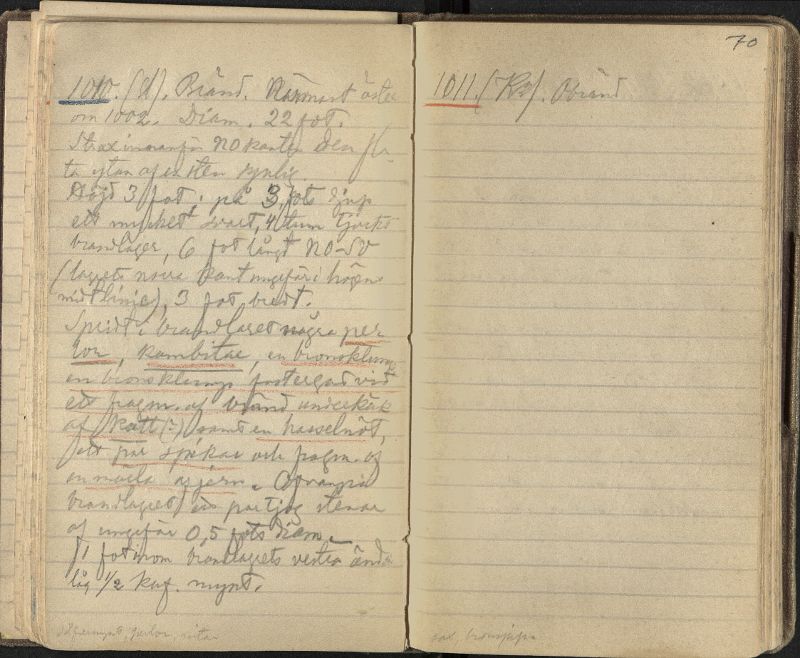 1010. (A). Bränd. Närmast öster
om 1002. Diam. 22 fot.
Strax innanför NO kanten den fla-
ta ytan af en sten synlig.
Höjd 3 fot; på 3 fots djup
ett mycket svart, 4 tum tjockt
brandlager, 6 fot långt NO-SV
(lagrets norra kant ungefär i högens
midtlinie), 3 fot bredt.
Spridt i brandlagret några per
lor, kambitar, en bronsklump
en bronsklump fastergad vid
ett fragm. af bränd underkäk
af katt (?) samt en hasselnöt,
ett par spikar och fragm. af
en nåla af järn. Ofvanpå
brandlagret en par tjog stenar
af ungefär 0,5 fots diam.
1 fot inom brandlagrets vestra ända
låg 1/2 kuf. mynt.
silfvermynt, perlor, nitar
70
1011. (Kz). Obränd
sax, bronsspänne